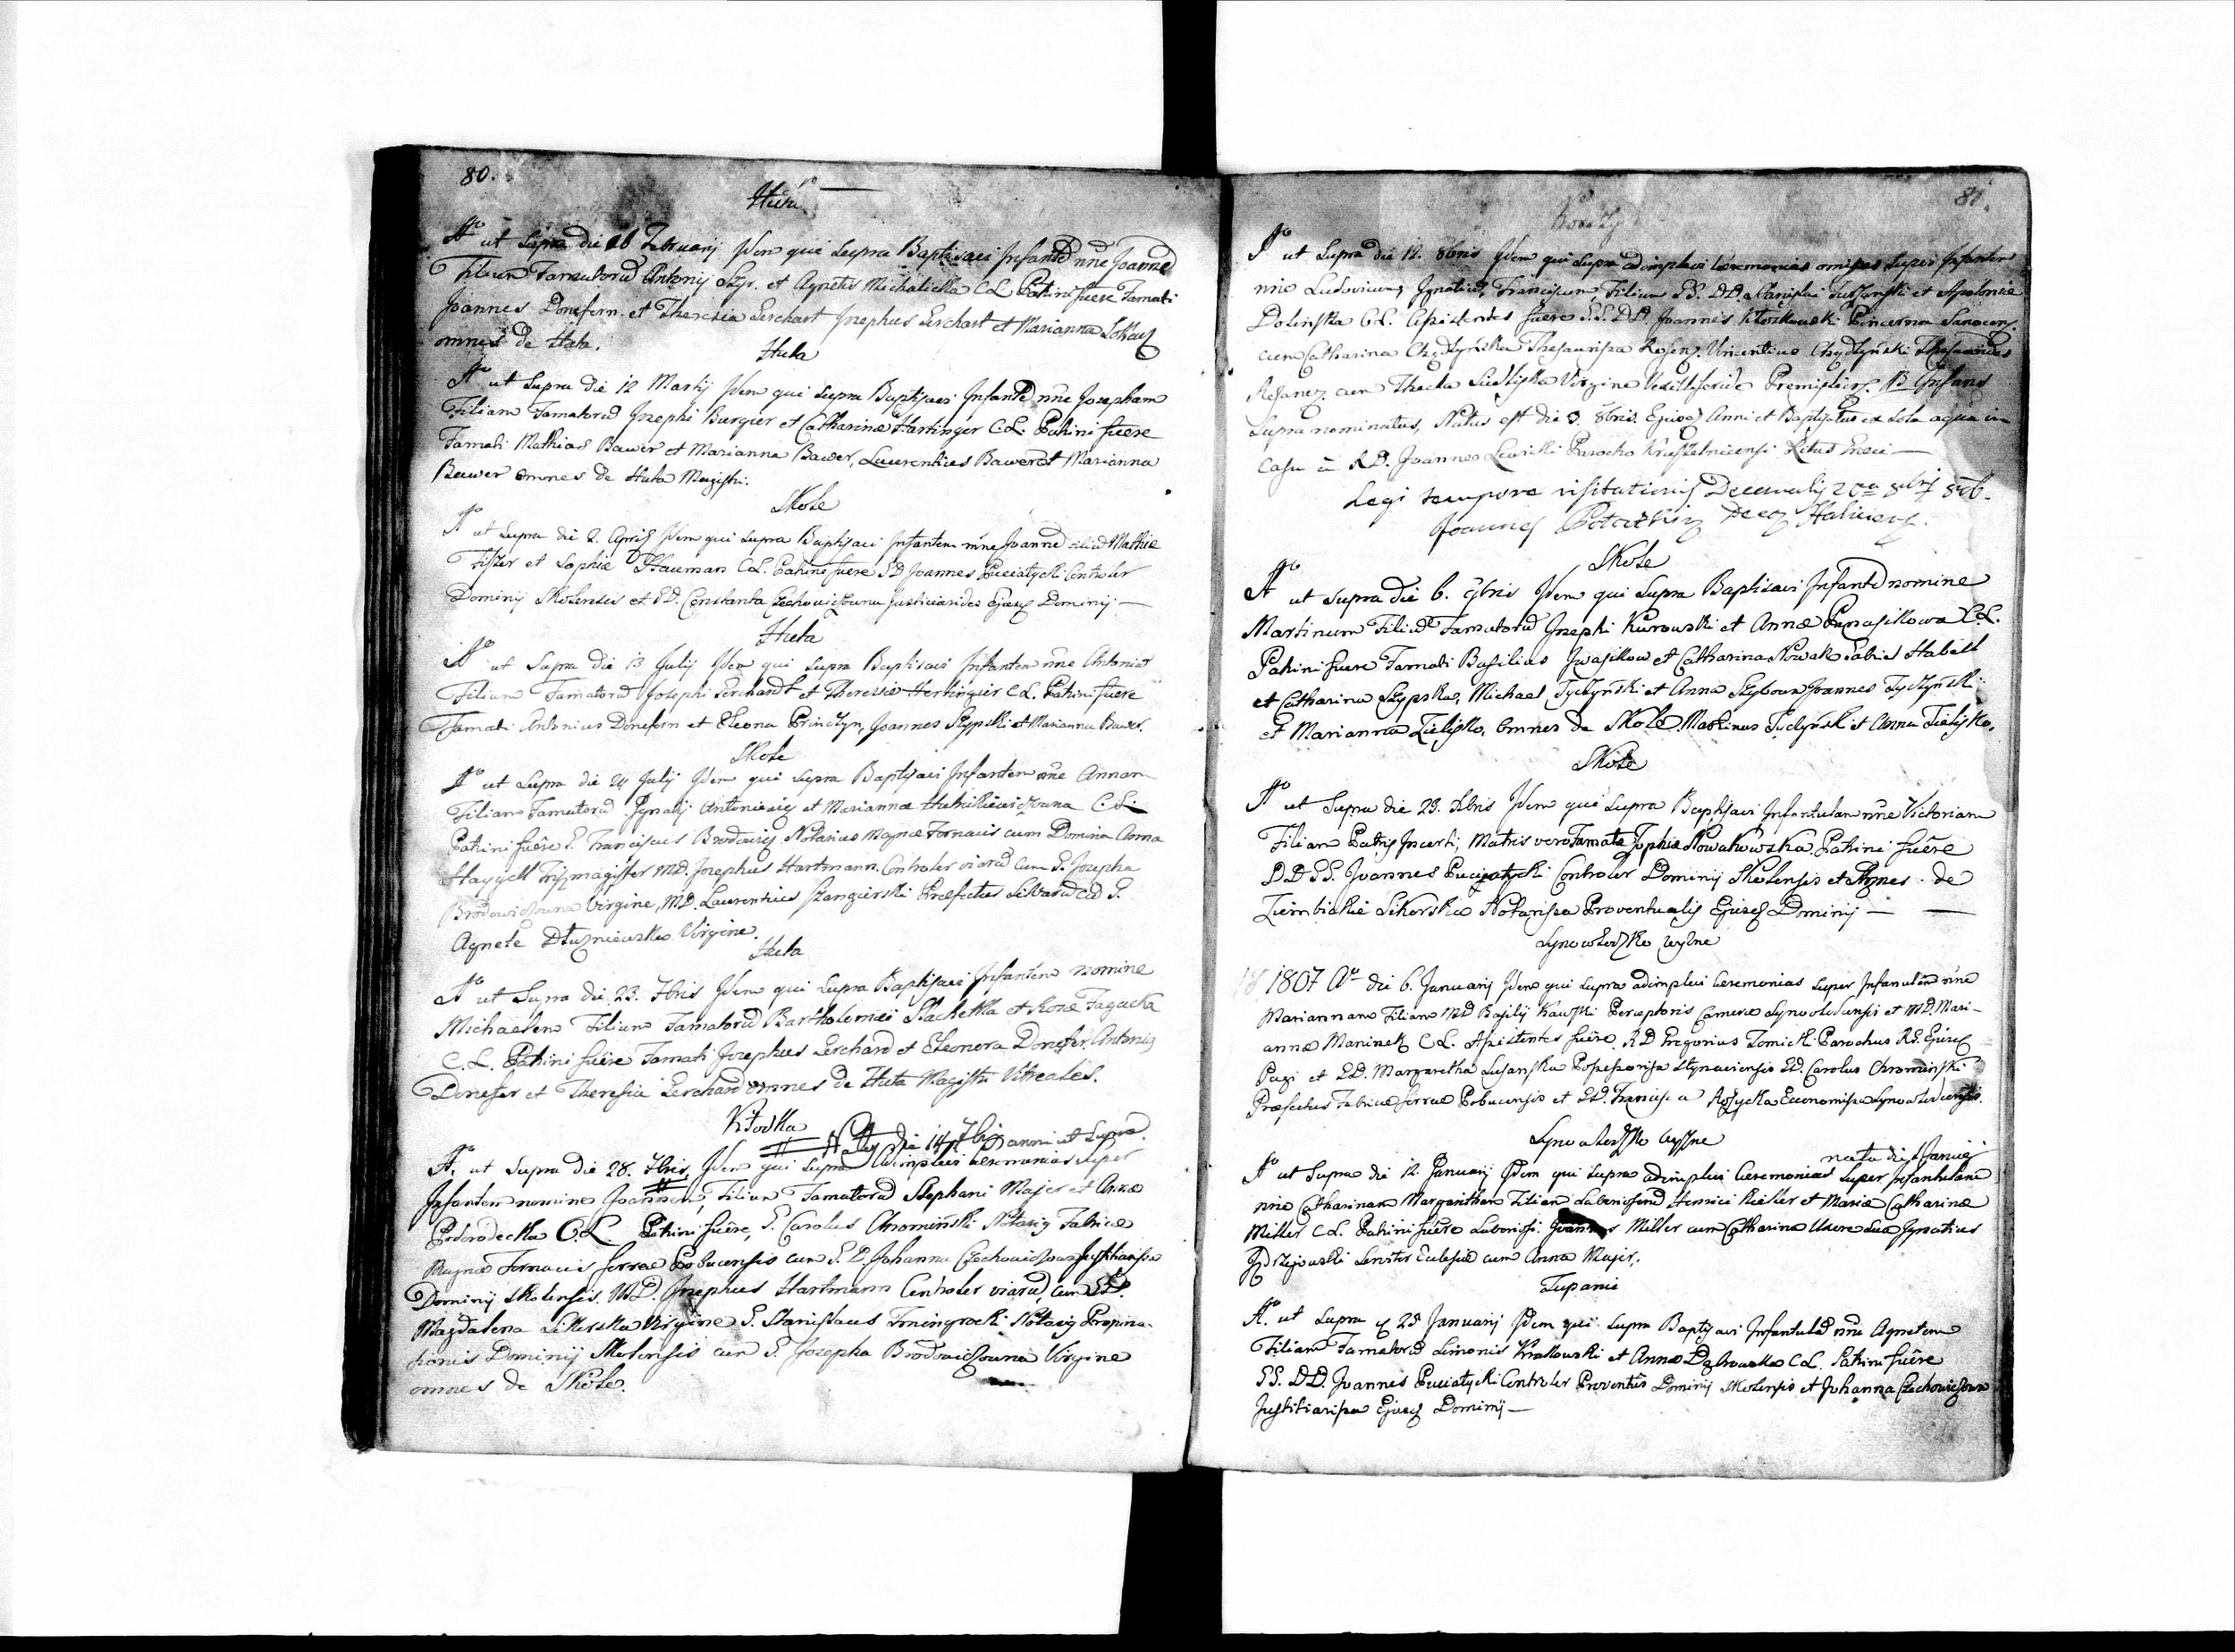 80.
Huta
Aº ut Supra die 16 Februarij Idem qui Supra Baptisavi Infantē nne Joannē
Filium Famatorū Antonij Szyr. et Agnetis Michalicka C.L. Patrini fuere Famati
Joannes Donefern. et Theresia Lerchart Josephus Lerchart et Marianna
omnes de Huta.
Huta
Aº ut Supra die 12 Martij Idem qui Supra Baptisavi Infantē nne Josepham
Filiam Famatorū Josephi Burger et Catharinæ Hartinger C.L. Patrini fuere
Famati Mathias Bawer et Marianna Bawer, Laurentius Bawer et Marianna
Bawer omnes de Huta Magistri.
Skole
Aº ut Supra die 2. Aprilis Idem qui Supra Baptisavi Infantem nne Joannē Filiū Mathiæ
Fister et Sophiæ Hauman C.L. Patrini fuere S.D. Joannes Puciatycki Controler
Dominij Skolensis et S.D. Constanta Czechowiczowna Justiciarides Ejusq Dominij —
Huta
Aº ut Supra die 13 Julij Idem qui Supra Baptisavi Infantem nne Antoniā
Filiam Famatorū Josephi Lerchardt et Theresiæ Hertingier C.L. Patrini fuere
Famati Antonius Donefern et Eleona Princzyn, Joannes Szypski et Marianna Bawer.
Skole
Aº ut Supra die 24 Julij Idem qui Supra Baptisavi Infantem nne Annam
Filiam Famatorū Ignatij Antoniewicz et Mariannæ C.L.
Patrini fuêre S. Franciscus Brodowicz Notarius Magnæ Fornacis cum Domina Anna
Hayyell M.D. Josephus Hartmann Controler viarū cum S. Josepha
Brodowiczowna Virgine, M.D. Laurentius Szangierski Præfectus Silvarū cū S.
Agnete Dłuzniewska Virgine.
Huta
Aº ut Supra die 23. 7bris Idem qui Supra Baptisavi Infantem nomine
Michaelem Filium Famatorū Bartholomei Stachetka et Rosæ Tagacka
C.L. Patrini fuêre Famati Josephus Lerchard et Eleonora Donefer, Antonius
Donefer et Theresia Lerchard omnes de Huta Magistri Vitreales.
Kłodka
Natus die 14 7bris anni ut Supra.
Aº ut Supra die 28. 7bris Idem qui Supra Adimplevi Ceremonias Super
Infantem nomine Joannem, Filium Famatorū Stephani Majer et Annæ
Podorodecka C.L. Patrini fuêre, S. Carolus Chromiński Notariq Fabricæ
Magnæ Fornacis ferreæ Pobucensis cum S.D. Johanna Czechowiczowa Justitiarissa
Dominij Skolensis. M.D. Josephus Hartmann Controler viarū, cum S.D.
Magdalena Sikerska Virgine S. Stanislaus Notariq Propina-
tionis Dominij Skolensis cum S. Josepha Brodowiczowna Virgine
omnes de Skole.
81.
Aº ut Supra die 12. 8bris Idem qui Supra adimplevi Ceremonias omissas Super Infantem
nne Ludovicum, Ignatiū, Franciscum, Filium SS. DD. Stanislai et Apoloniæ
Dolinska C.L. Assistentes fuere S.S. D.D. Joannes Kłoskowski Pincerna Sanocens.
cum Catharina Chądzyńska Thesaurissa Rosens. Vincentius Chądzyński Thesaurides
cum Thecla Siedliska Virgine Vexilliferide Premisliens. NB Infans
Supra nominatus, Natus est die 3. 8bris Ejusq Anni et Baptisatus ex sola aqua in
Casu a R.D. Joannes Lewicki Parocho Kruszelnicensi Ritus Græci —
Legi tempore visitationis Decanalis 20a 8bris 806.
Joannes Potocki Dec. Haliciens.
Skole
Aº ut Supra die 6. 9bris Idem qui Supra Baptisavi Infantē nomine
Martinum Filiū Famatorū Josephi Kurowski et Annæ C.L.
Patrini fuere Famati Basilius Iwasikow et Catharina Nowak Gabriel Haball
et Catharina Szypska, Michael Tyczyński et Anna Joannes Tyczyński
et Marianna Zielisko, Omnes de Skole Martinus Tyczyński et Anna Zielisko.
Skole
Aº ut Supra die 23. Xbris Idem qui Supra Baptisavi Infantulam nne Victoriam
Filiam Patris Incerti, Matris vero Famatæ Sophiæ Nowakowska. Patrini fuêre
DD SS. Joannes Puciatycki Controler Dominij Skolensis et Agnes de
Ziembickie Sikorska Notarissa Proventualis Ejusq Dominij —
Synowodzko wyżne
1807 Aº die 6. Januarij Idem qui Supra adimplevi Ceremonias Super Infantulam nne
Mariannam Filiam MD Basilij Kawski Perceptoris Cameræ et M.D. Mari-
annæ Maninek C.L. Assistentes fuêre, R.D. Gregorius Tomicki Parochus R.G. Ejusq
Pagi et S.D. Margaretha Lusanska S.D. Carolus Chromiński
Præfectus Fabricæ ferreæ Pobucensis et S.D. Francisca Rozycka Economissa
Synowodzko wyżne
nata die 1 Januarij
Aº ut Supra die 12. Januarij Idem qui Supra adimplevi Ceremonias Super Infantulam
nne Catharinam Margaritham Filiam Laboriosorū Henrici Kieller et Mariæ Catharinæ
Miller C.L. Patrini fuêre Laboriosi Joannes Miller cum Catharina Uxore Sua Ignatius
Jędrzejowski Servitor Ecclesiæ cum Anna Majer.
Tupanie
Aº ut Supra 25 Januarij Idem qui Supra Baptisavi Infantulā nne Agnetem
Filiam Famatorū Simonis Krakowski et Annæ Dąbrowska C.L. Patrini fuêre
SS. DD. Joannes Puciatycki Controler Proventûs Dominij Skolensis et Johanna Czechowiczowa
Justitiarissa Ejusq Dominij —